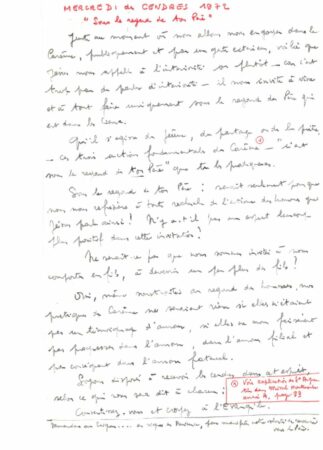 MERCREDI des CENDRES 1972
"Sous le regard de ton Père"
Juste au moment où nous allons nous engager dans le
Carême, publiquement et par un geste extérieur, voilà que
Jésus nous appelle à l'intériorité ou plutôt – car c'est
trop peu de parler d'intériorité – il nous invite à vivre
et à tout faire uniquement sous le regard du Père qui
est dans les cieux.
Qu'il s'agisse du jeûne, du partage ou de la prière,
– ces trois actions fondamentales du Carême – "c'est
sous le regard de ton Père" que tu les pratiqueras.
Sous le regard de ton Père : serait seulement pour que
nous nous refusions à toute recherche de l'estime des hommes que
Jésus parle ainsi ! N'y a-t-il pas un aspect beaucoup
plus positif dans cette invitation !
Ne serait-ce pas que nous sommes invités à nous
comporter en fils, à devenir un peu plus des fils !
Oui, même au regard des hommes, nos
pratiques de Carême ne seraient rien si elles n'étaient
pas un témoignage d'amour, si elles ne nous faisaient
pas progresser dans l'amour, dans l'amour filial et
par conséquent dans l'amour fraternel.
Soyons disposés à recevoir les cendres dans cet esprit,
selon ce qui sera dit à chacun :
Convertissez-vous et croyez à l'Évangile.
Voir explication de
du Missel
année A, page 83